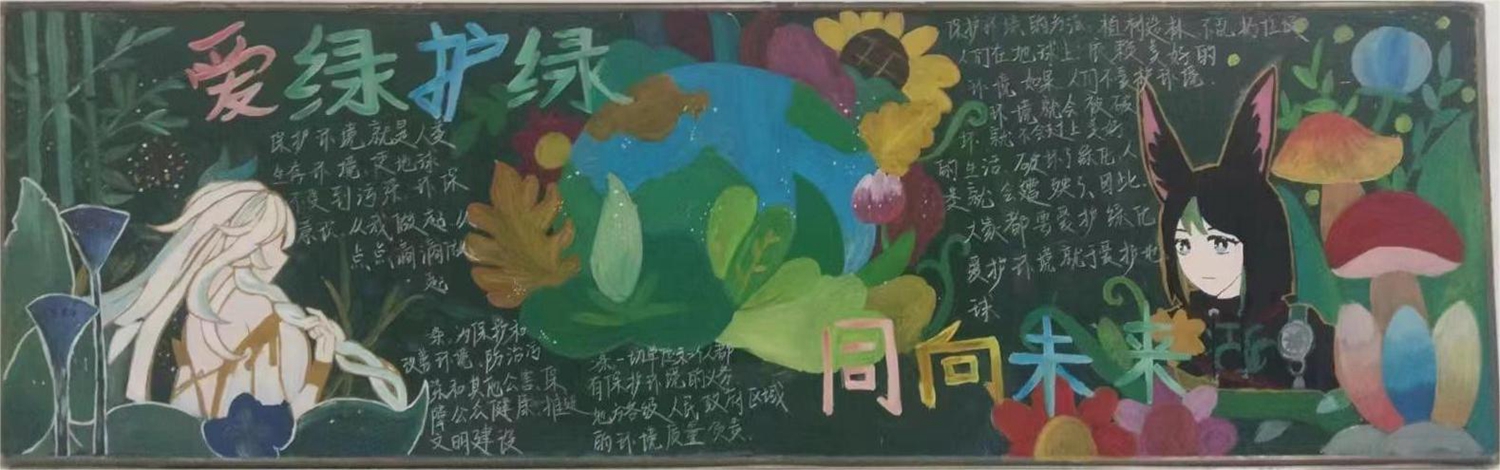 爱绿护绿
保护环境就是人类
生存环境,使地球
不受到污染,环保
意识,从我做起从
点点滴滴做
起
条,为保护和
改善环境,防治污
染和其他公害,保
障公众健康,推进
文明建设
条,一切单位和个人都
有保护环境的义务
地方各级人民政府区域
的环境质量负责.
保护环境的方法、植树造林不乱扔垃圾
人们在地球上依赖美好的
环境如果人们不爱护环境
环境就会被破
坏就不会过上美好
的生活,破坏了绿化人
类就会遭殃,因此.
大家都需要爱护绿化
爱护环境就于爱护地
球
同向未来